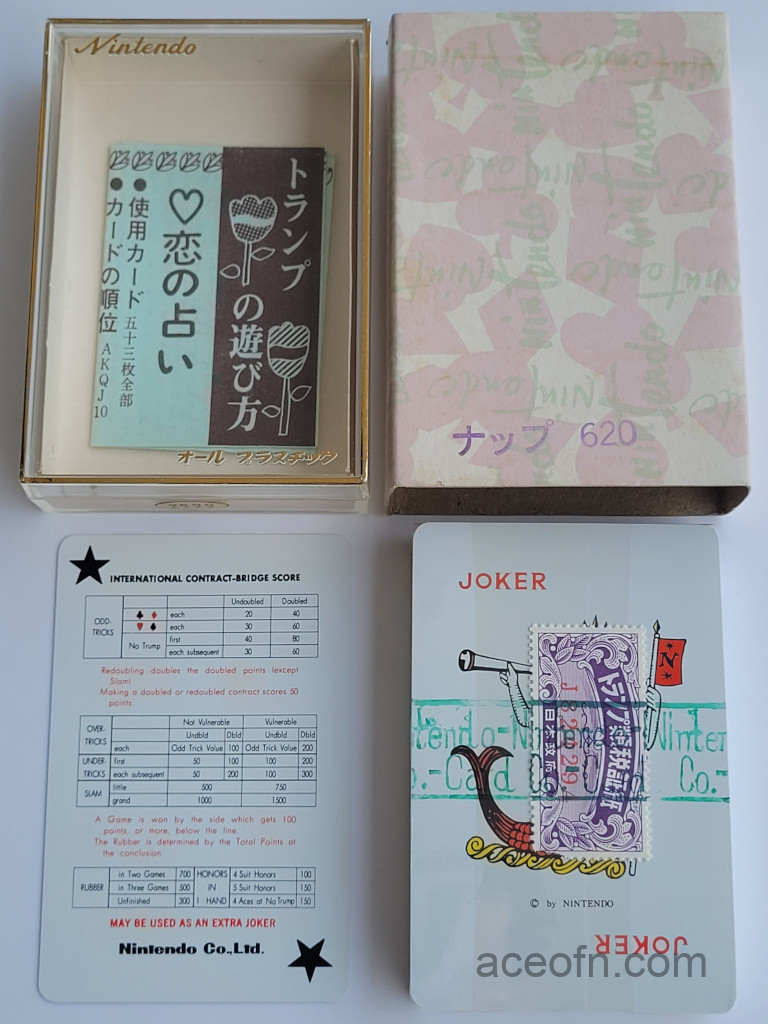 Nintendo
トランプの遊び方
♡恋の占い
●使用カード 五十三枚全部
●カードの順位 AKQJ10
オール プラスチック
Nintendo
Nintendo
Nintendo
Nintendo
Nintendo
ナップ 620
INTERNATIONAL CONTRACT-BRIDGE SCORE
Undoubled Doubled
ODD-TRICKS ♣ ♦ each 20 40
♥ ♠ each 30 60
No Trump first 40 80
each subsequent 30 60
Redoubling doubles the doubled points (except
Slam)
Making a doubled or redoubled contract scores 50
points.
Not Vulnerable Vulnerable
OVER-TRICKS Undbld Dbld Undbld Dbld
each Odd Trick Value 100 Odd Trick Value 200
UNDER-TRICKS first 50 100 100 200
each subsequent 50 200 100 300
SLAM little 500 750
grand 1000 1500
A Game is won by the side which gets 100
points, or more, below the line.
The Rubber is determined by the Total Points at
the conclusion.
RUBBER in Two Games 700 HONORS 4 Suit Honors 100
in Three Games 500 IN 5 Suit Honors 150
Unfinished 300 1 HAND 4 Aces at No Trump 150
MAY BE USED AS AN EXTRA JOKER
Nintendo Co.,Ltd.
JOKER
N
トランプ類税証紙
日本政府
J820291
tendo-Nintendo-Ninten
o.-Card Co.-Card Co.-
© by NINTENDO
JOKER
aceofn.com